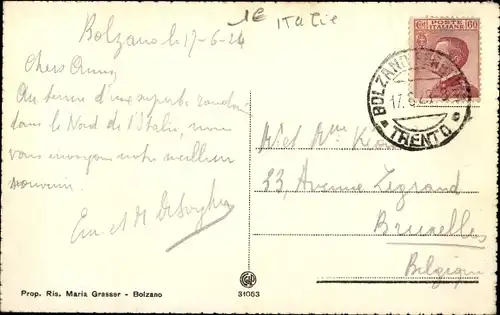 1E Italie
Bolzano le 17-6-24
Chers Amis,
Au terme d'une superbe randonnée
dans le Nord de l'Italie, nous
vous envoyons notre meilleur
souvenir.
Em et M
POSTE ITALIANE
60
BOLZANO
17.6.2
TRENTO
M et Mme
33, Avenue Legrand
Bruxelles
Belgique
Prop. Ris. Maria Grasser - Bolzano
31053